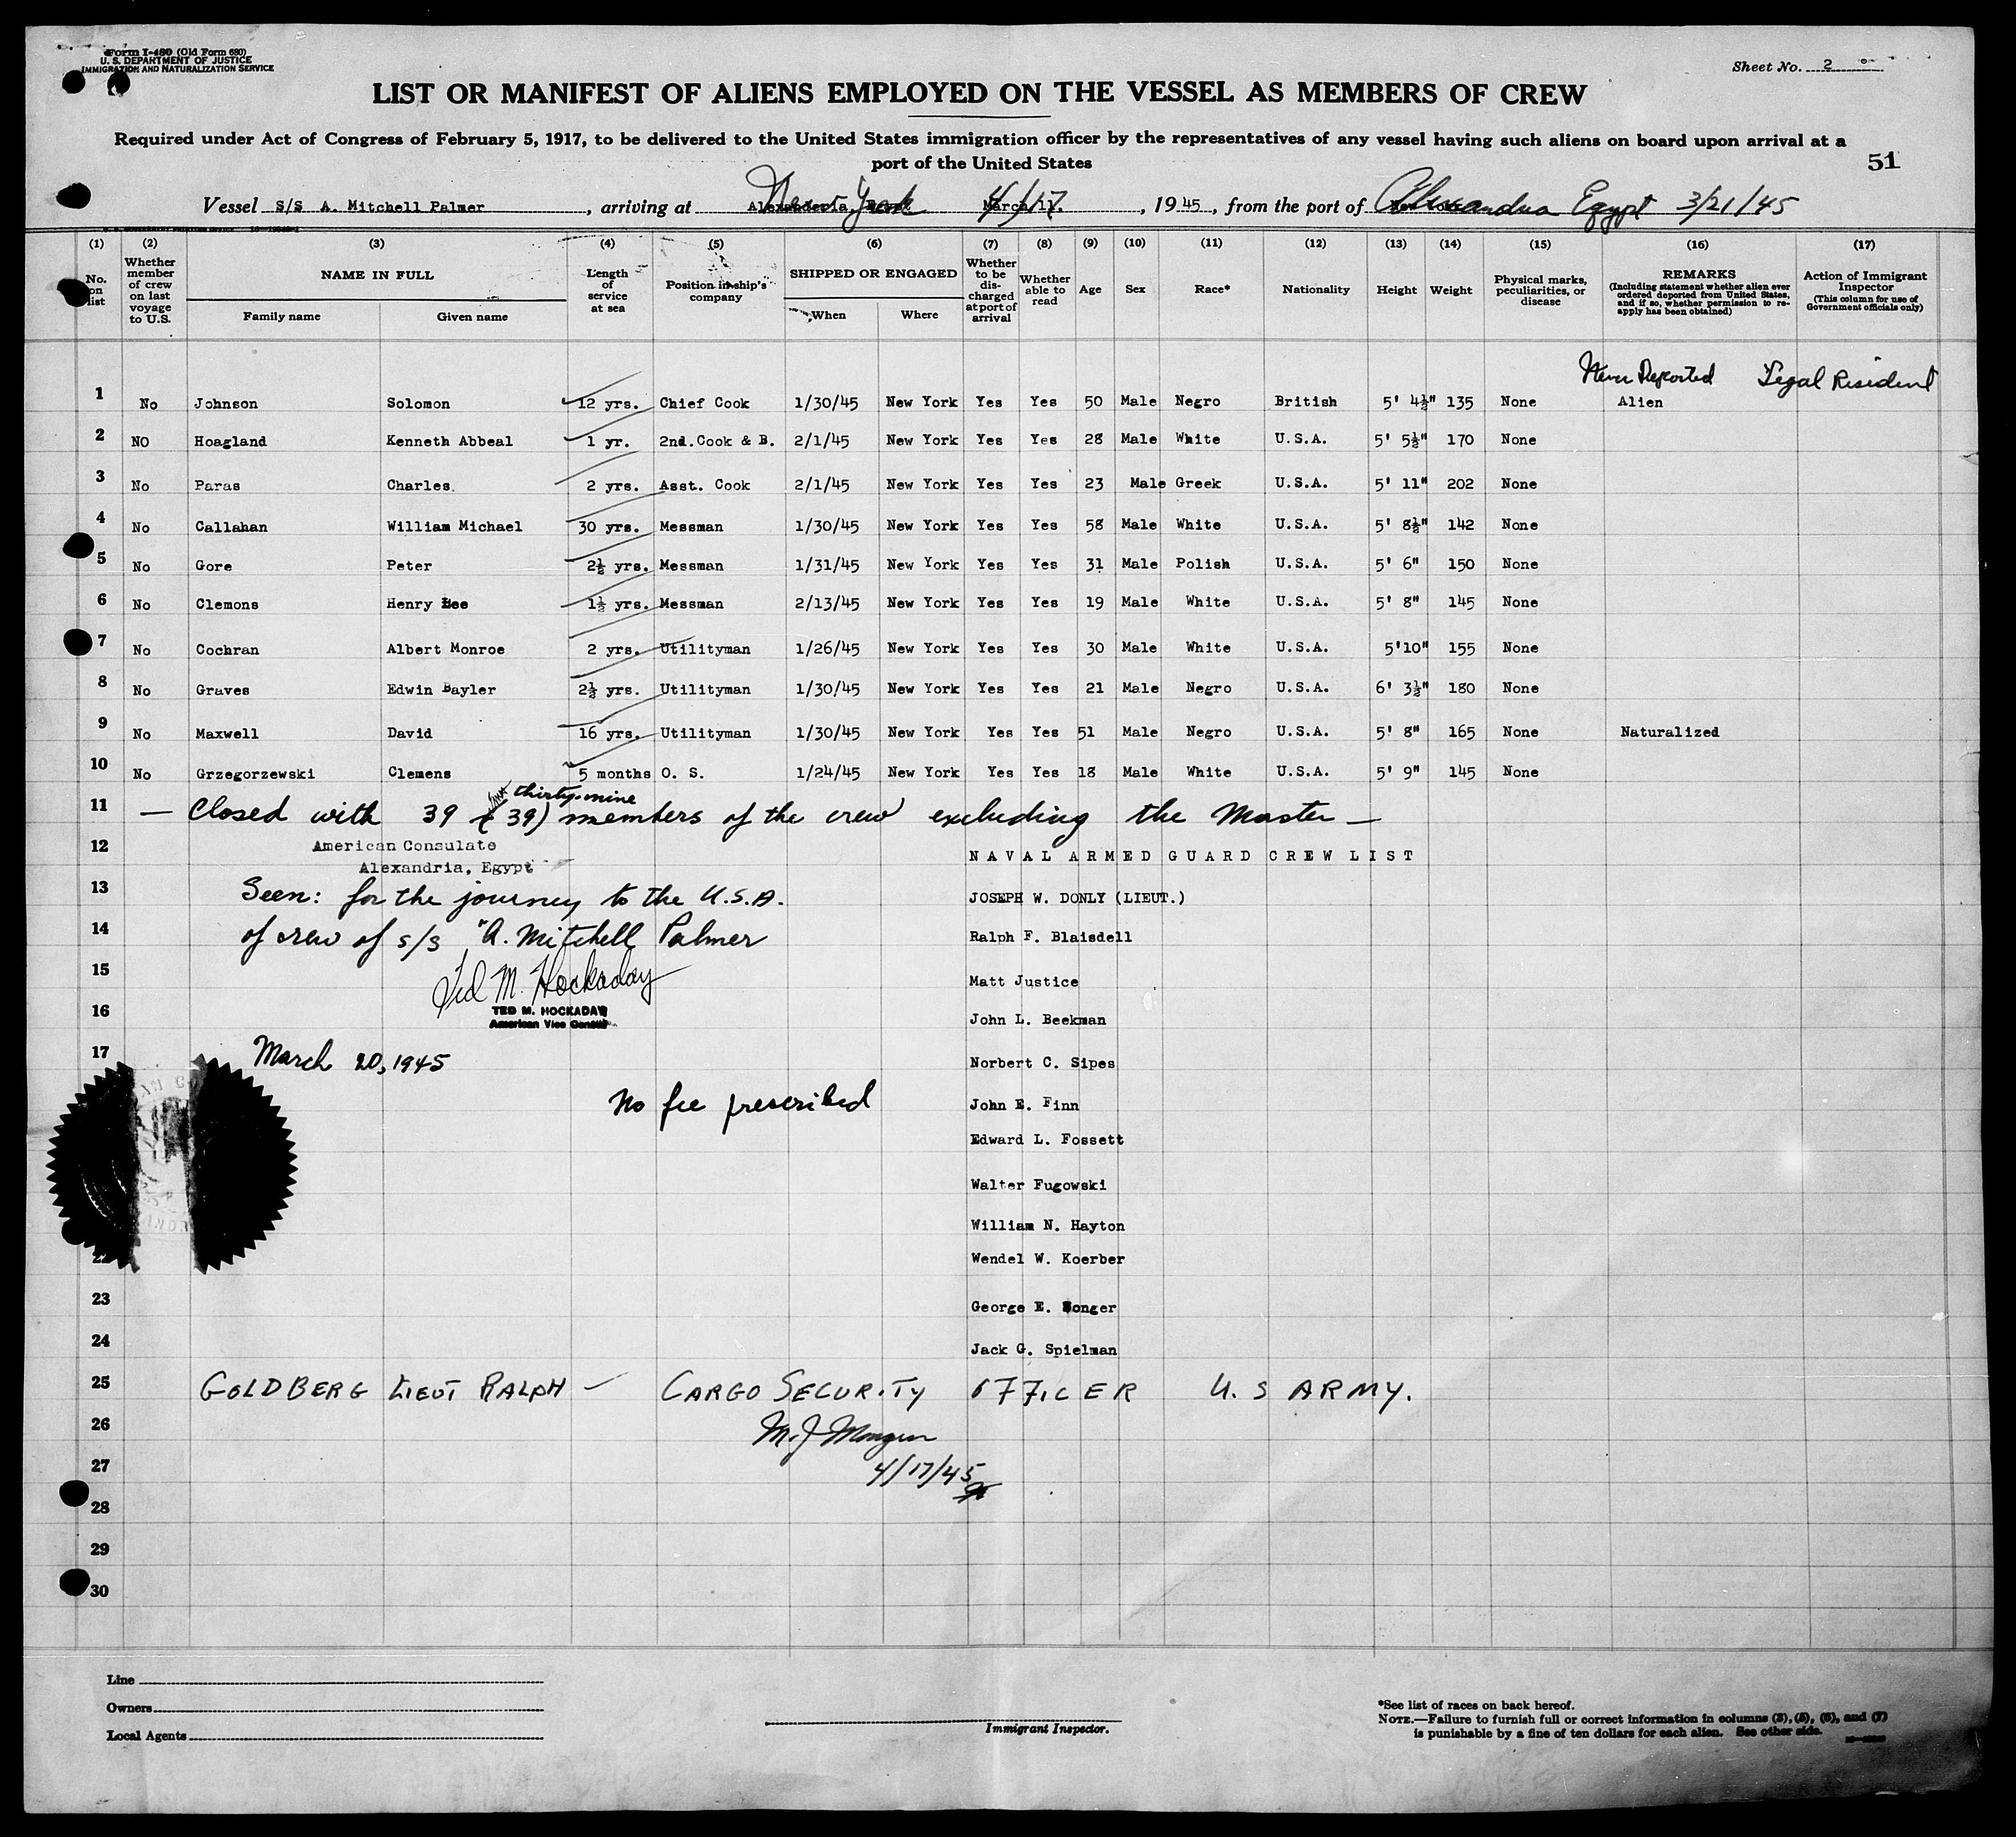 Form I-480 (Old Form 680)
U. S. DEPARTMENT OF JUSTICE
IMMIGRATION AND NATURALIZATION SERVICE
Sheet No. 2
LIST OR MANIFEST OF ALIENS EMPLOYED ON THE VESSEL AS MEMBERS OF CREW
Required under Act of Congress of February 5, 1917, to be delivered to the United States immigration officer by the representatives of any vessel having such aliens on board upon arrival at a
port of the United States
51
Vessel S/S A. Mitchell Palmer, arriving at New York 4/17, 1945, from the port of Alexandria Egypt 3/21/45
(1) (2) (3) (4) (5) (6) (7) (8) (9) (10) (11) (12) (13) (14) (15) (16) (17)
No. on list
Whether member of crew on last voyage to U.S.
NAME IN FULL
Family name Given name
Length of service at sea
Position in ship's company
SHIPPED OR ENGAGED
When Where
Whether to be discharged at port of arrival
Whether able to read
Age
Sex
Race*
Nationality
Height
Weight
Physical marks, peculiarities, or disease
REMARKS
(Including statement whether alien ever ordered deported from United States, and if so, whether permission to re-apply has been obtained)
Action of Immigrant Inspector
(This column for use of Government officials only)
Never Deported Legal Resident
1 No Johnson Solomon 12 yrs. Chief Cook 1/30/45 New York Yes Yes 50 Male Negro British 5' 4½" 135 None Alien
2 NO Hoagland Kenneth Abbeal 1 yr. 2nd.Cook & B. 2/1/45 New York Yes Yes 28 Male White U.S.A. 5' 5½" 170 None
3 No Paras Charles 2 yrs. Asst. Cook 2/1/45 New York Yes Yes 23 Male Greek U.S.A. 5' 11" 202 None
4 No Callahan William Michael 30 yrs. Messman 1/30/45 New York Yes Yes 58 Male White U.S.A. 5' 8½" 142 None
5 No Gore Peter 2½ yrs. Messman 1/31/45 New York Yes Yes 31 Male Polish U.S.A. 5' 6" 150 None
6 No Clemons Henry Lee 1½ yrs. Messman 2/13/45 New York Yes Yes 19 Male White U.S.A. 5' 8" 145 None
7 No Cochran Albert Monroe 2 yrs. Utilityman 1/26/45 New York Yes Yes 30 Male White U.S.A. 5'10" 155 None
8 No Graves Edwin Bayler 2½ yrs. Utilityman 1/30/45 New York Yes Yes 21 Male Negro U.S.A. 6' 3½" 180 None
9 No Maxwell David 16 yrs. Utilityman 1/30/45 New York Yes Yes 51 Male Negro U.S.A. 5' 8" 165 None Naturalized
10 No Grzegorzewski Clemens 5 months O. S. 1/24/45 New York Yes Yes 18 Male White U.S.A. 5' 9" 145 None
thirty-nine
11 — Closed with 39 (39) members of the crew excluding the Master —
12 American Consulate
Alexandria, Egypt
NAVAL ARMED GUARD CREW LIST
13 Seen: for the journey to the U.S.A. JOSEPH W. DONLY (LIEUT.)
14 of crew of s/s "A. Mitchell Palmer Ralph F. Blaisdell
15 Ted M. Hockaday Matt Justice
16 TED M. HOCKADAY John L. Beekman
American Vice Consul
17 March 20, 1945 Norbert C. Sipes
No fee prescribed John E. Finn
Edward L. Fossett
Walter Fugowski
William N. Hayton
22 Wendel W. Koerber
23 George E. Songer
24 Jack G. Spielman
25 GOLDBERG LIEUT RALPH — CARGO SECURITY OFFICER U. S ARMY.
26
27 4/17/45
28
29
30
Line
Owners
Local Agents
Immigrant Inspector.
*See list of races on back hereof.
NOTE.—Failure to furnish full or correct information in columns (3), (5), (6), and (7)
is punishable by a fine of ten dollars for each alien. See other side.